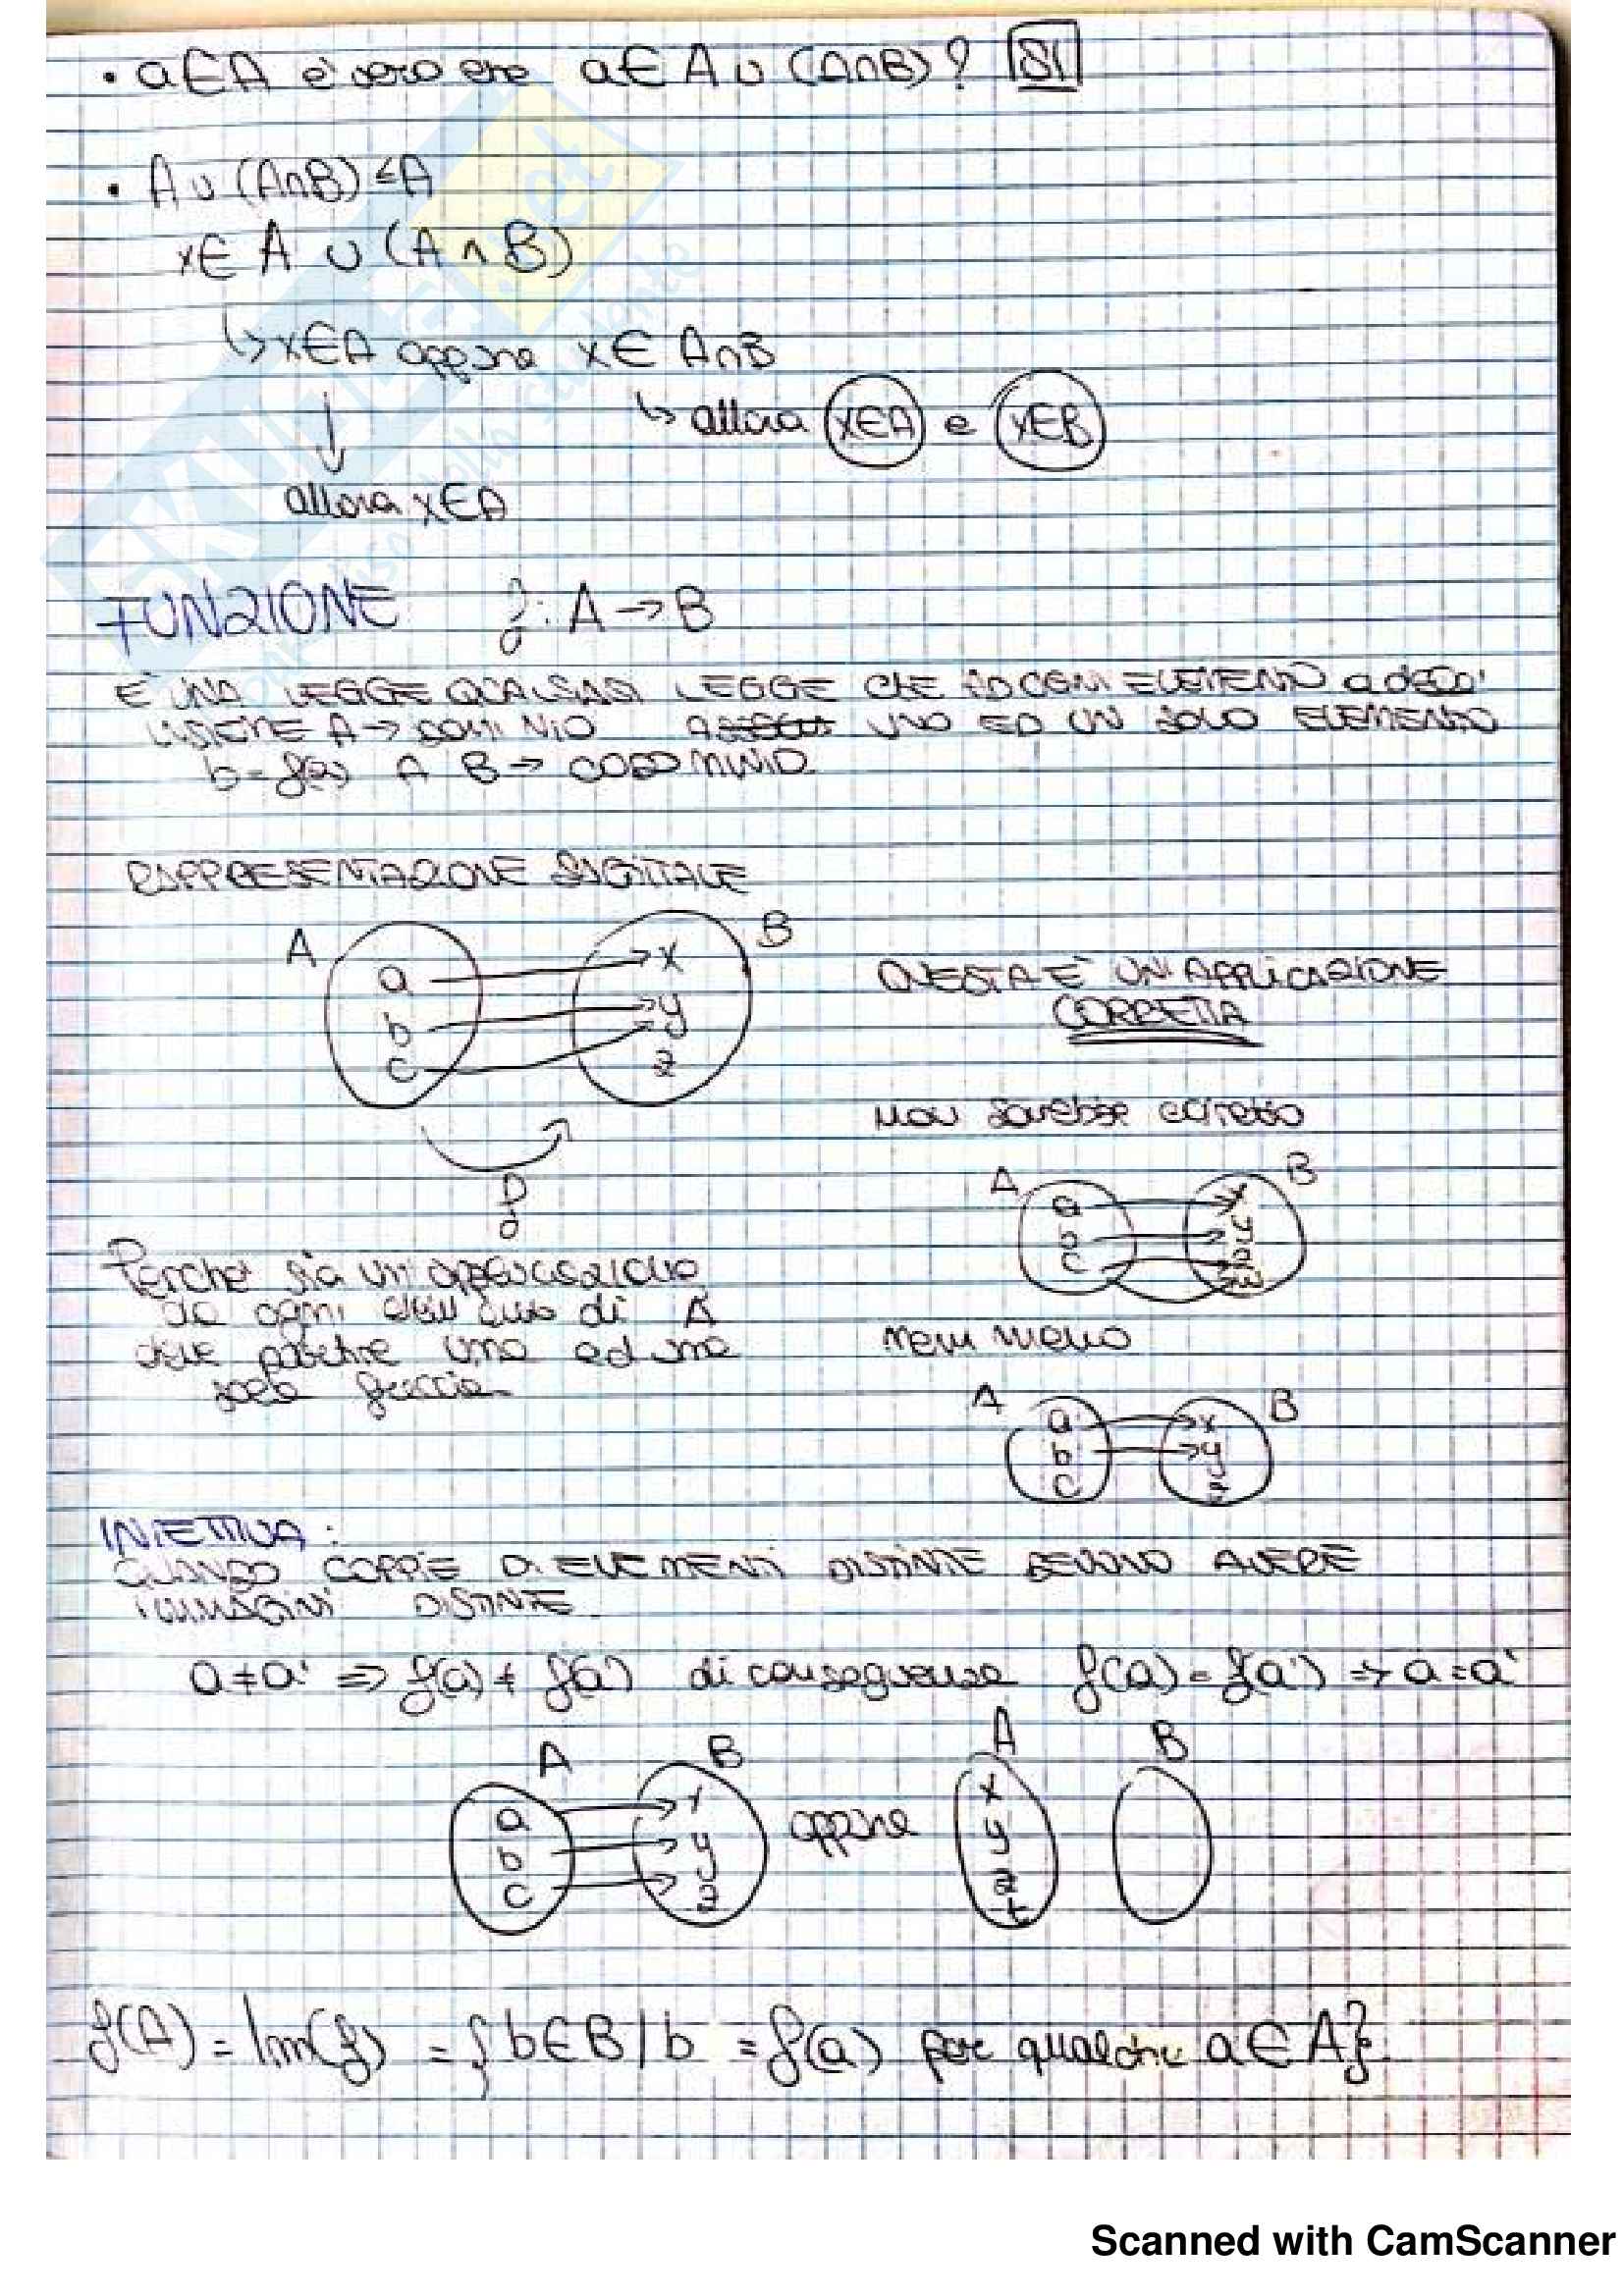 • a∈A è vero che a∈A∪(A∩B)? SI
• A∪(A∩B)⊆A
x∈A∪(A∩B)
↳ x∈A oppure x∈A∩B
↳ allora x∈A e x∈B
↓
allora x∈A
FUNZIONE f: A→B
È UNA LEGGE QUALSIASI LEGGE CHE AD OGNI ELEMENTO a dell'
INSIEME A → DOMINIO UNO ED UN SOLO ELEMENTO
b=f(a) A B → CODOMINIO
RAPPRESENTAZIONE SAGITTALE
A B
a x
b y
c z
f
QUESTA È UN'APPLICAZIONE
CORRETTA
Non sarebbe corretto
A B
a x
b y
c z
Perché sia un'applicazione
da ogni di A
deve partire una ed una
sola freccia
nem meno
A B
a x
b y
c z
INIETTIVA:
QUANDO COPPIE DI ELEMENTI DISTINTE DEVONO AVERE
IMMAGINI DISTINTE
a≠a' ⇒ f(a)≠f(a') di conseguenza f(a)=f(a') ⇒ a=a'
A B
a x
b y
c z
oppure
A B
x
y
z
t
f(A) = Im(f) = {b∈B/b = f(a) per qualche a∈A}
Scanned with CamScanner